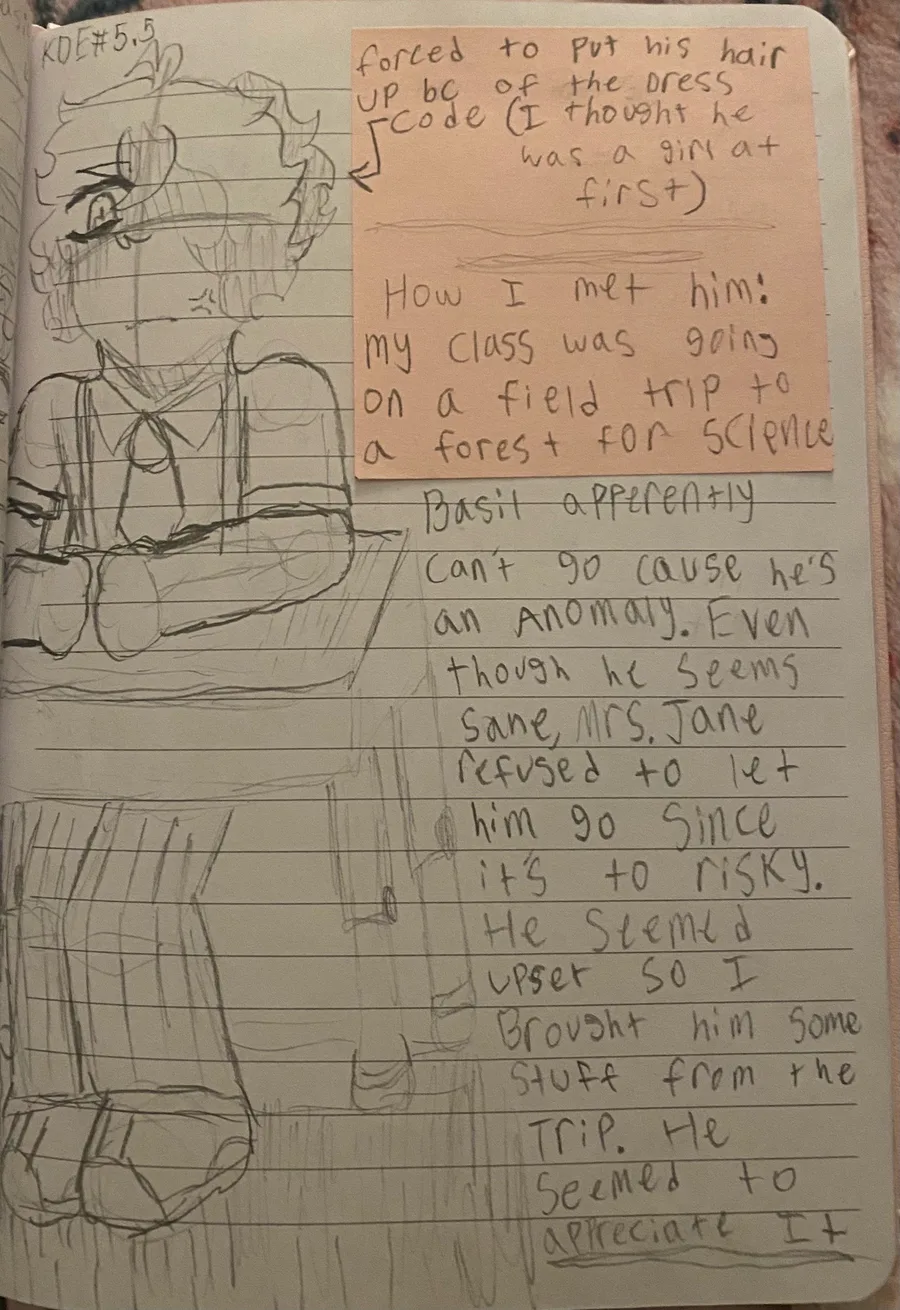 KDE#5.5
forced to put his hair
up bc of the Dress
Code (I thought he
was a girl at
first)
How I met him:
my class was going
on a field trip to
a forest for science
Basil apperently
can't go cause he's
an Anomaly. Even
though he seems
sane, Mrs. Jane
refused to let
him go since
it's to risky.
He seemed
upset so I
Brought him some
stuff from the
Trip. He
seemed to
appreciate It